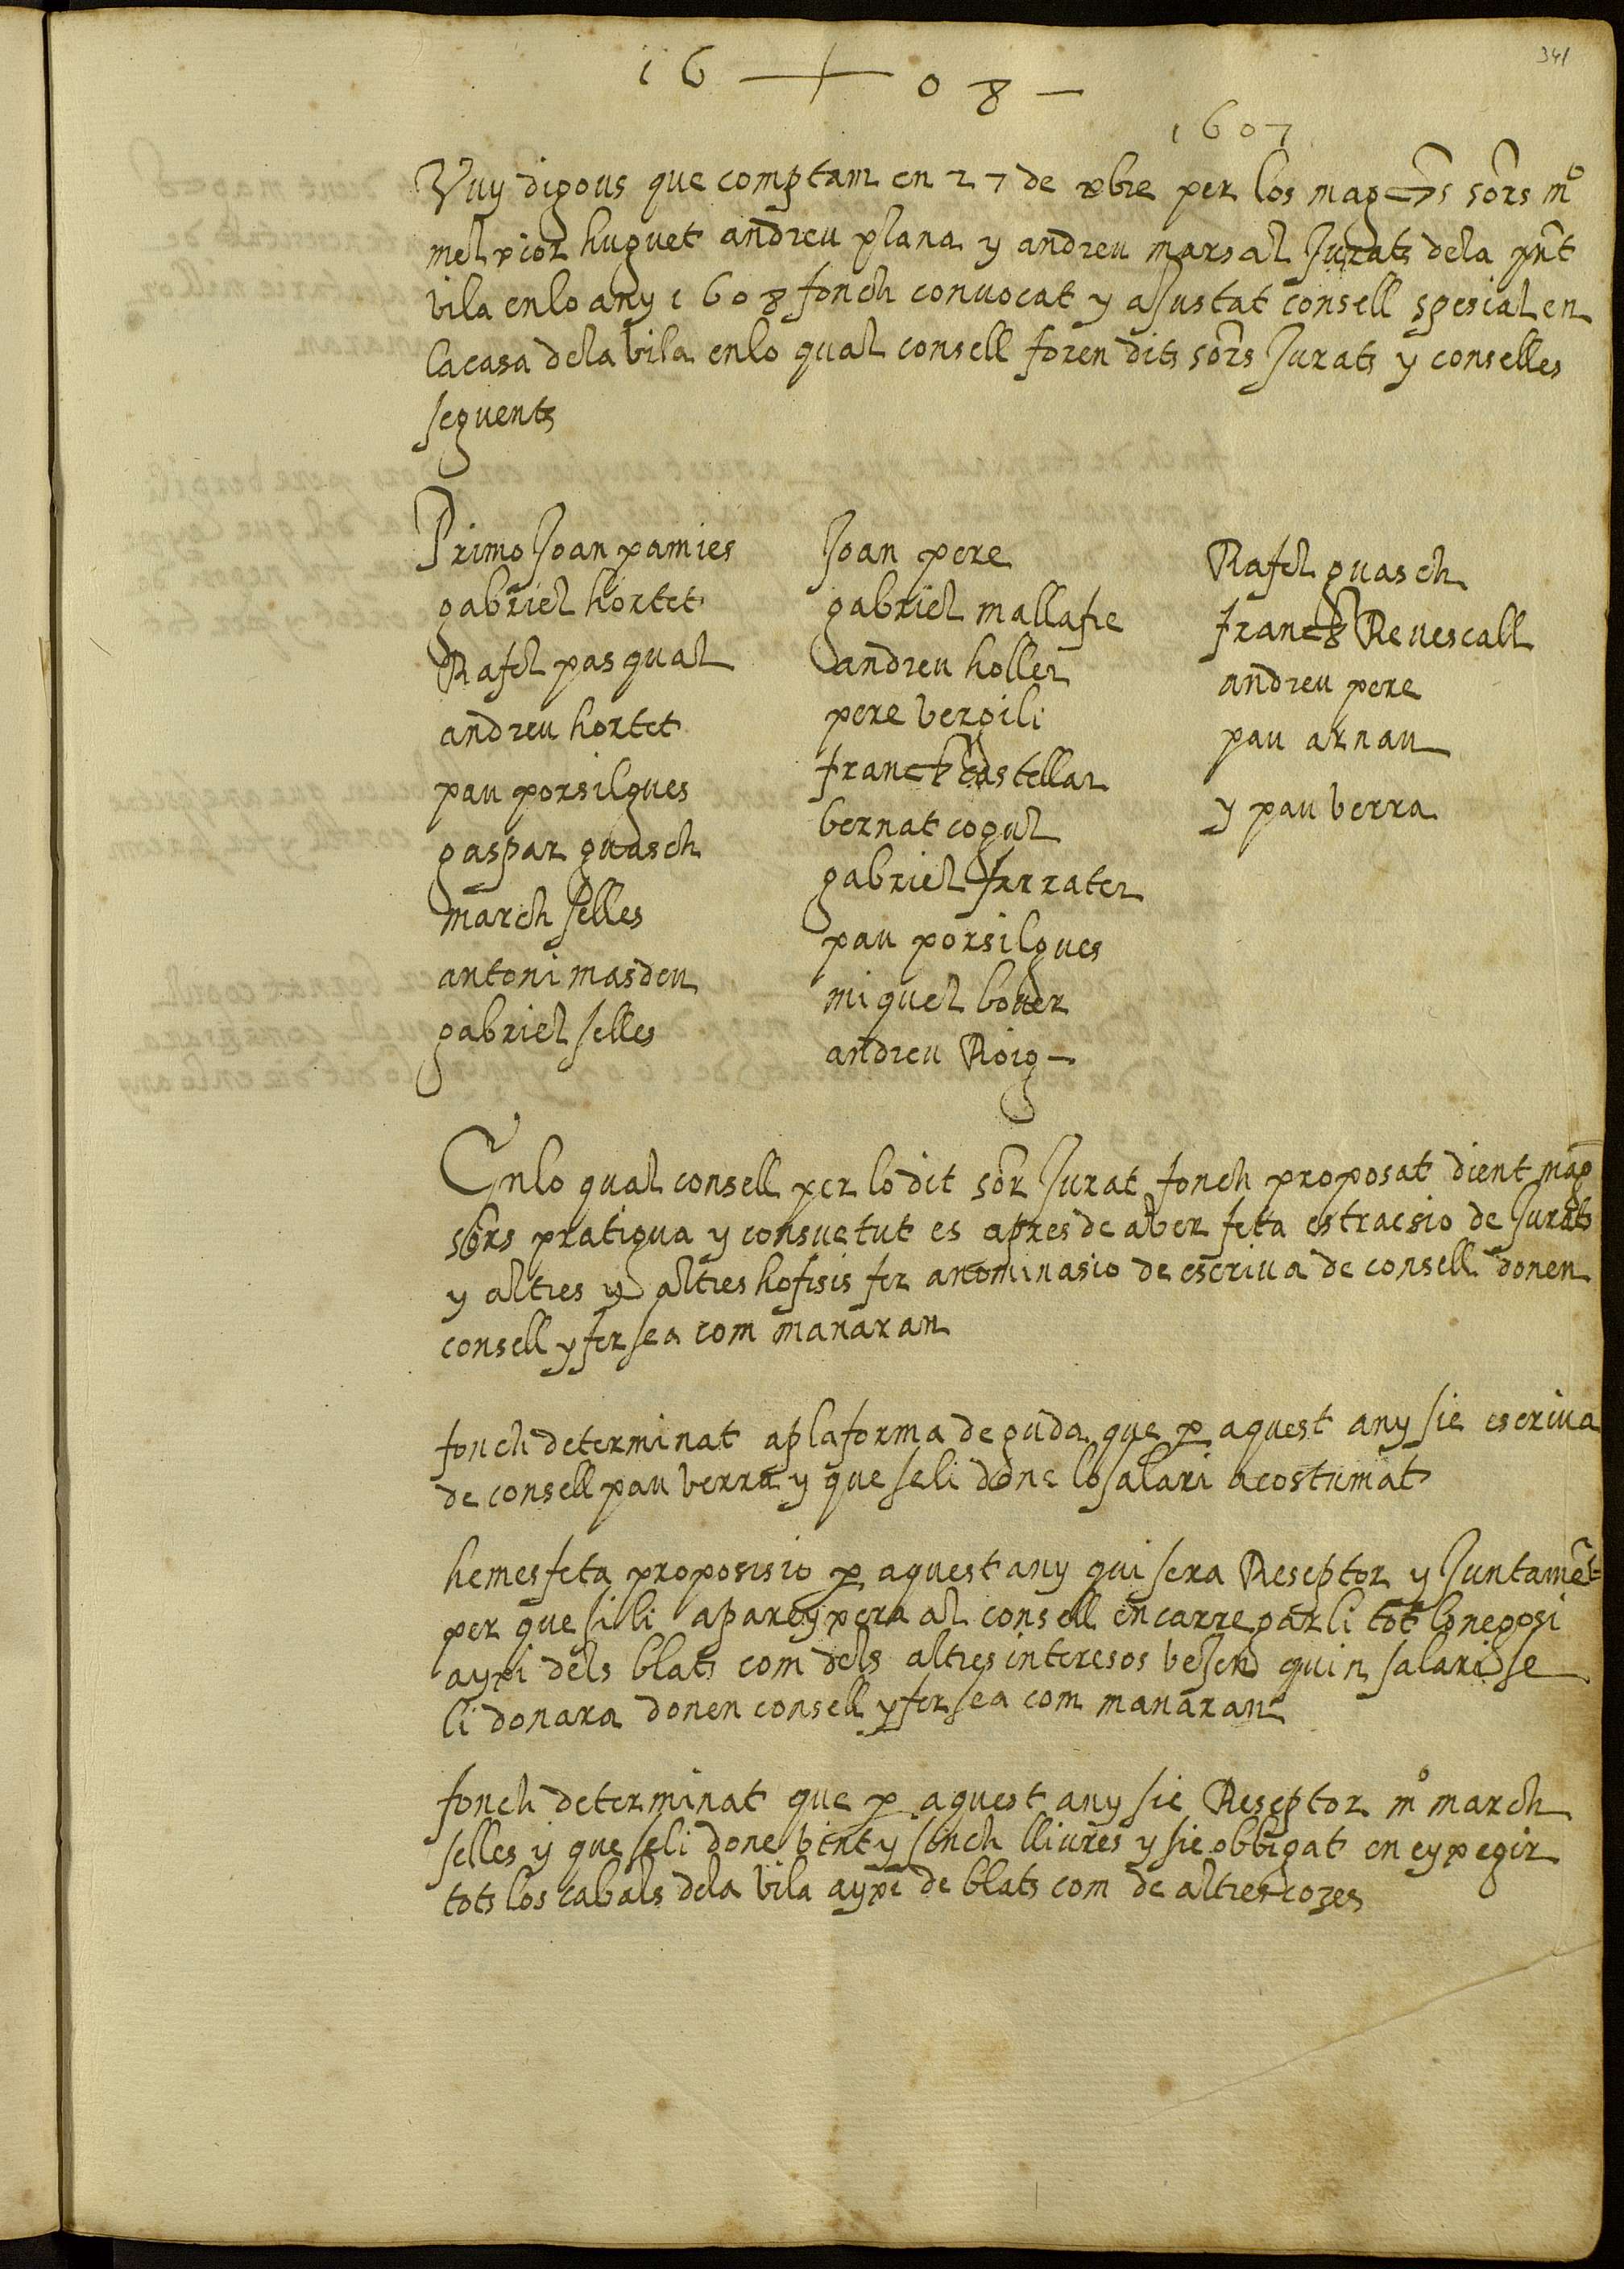 341
16 + 08 —
1607
Vuy digous que comptam en 27 de xbre per los magchs sors mo
melxior huguet andreu plana y andreu marsal Jurats dela pnt
vila enlo any 1608 fonch convocat y ajustat consell spesial en
lacasa dela vila enlo qual consell foren dits sors Jurats y conselles
seguents
Primo Joan pamies
gabriel hortet
Rafel pasqual
andreu hortet
pau porsilgues
gaspar guasch
march selles
antoni masdeu
gabriel selles
Joan pere
gabriel mallafre
andreu holler
pere vergili
franch castellar
bernat cogul
gabriel farrater
pau porsilgues
miquel bover
andreu Roig —
Rafel guasch
franch Revescall
andreu pere
pau arnau
y pau berra
Enlo qual consell per lo dit sor Jurat fonch proposat dient mag
sors pratiqua y consuetut es apres de aver feta estracsio de Jurats
y altres y altres hofisis fer anominasio de escriva de consell donen
consell y fer sea com manaran
fonch determinat ab laforma deguda que p aquest any sie escriva
de consell pau berra y que seli done lo salari acostumat
hemes feta proposisio p aquest any qui sera Reseptor y Juntamet
per que si li apareyxera al consell encarregarli tot lo negosi
ayxi dels blats com dels altres interesos veien quin salari se
li donara donen consell y fer sea com manaran
fonch determinat que p aquest any sie Reseptor mo march
selles y que seli done vint y sinch lliures y sie obbigat en eyxegir
tots los cabals dela vila ayxi de blats com de altres cozes